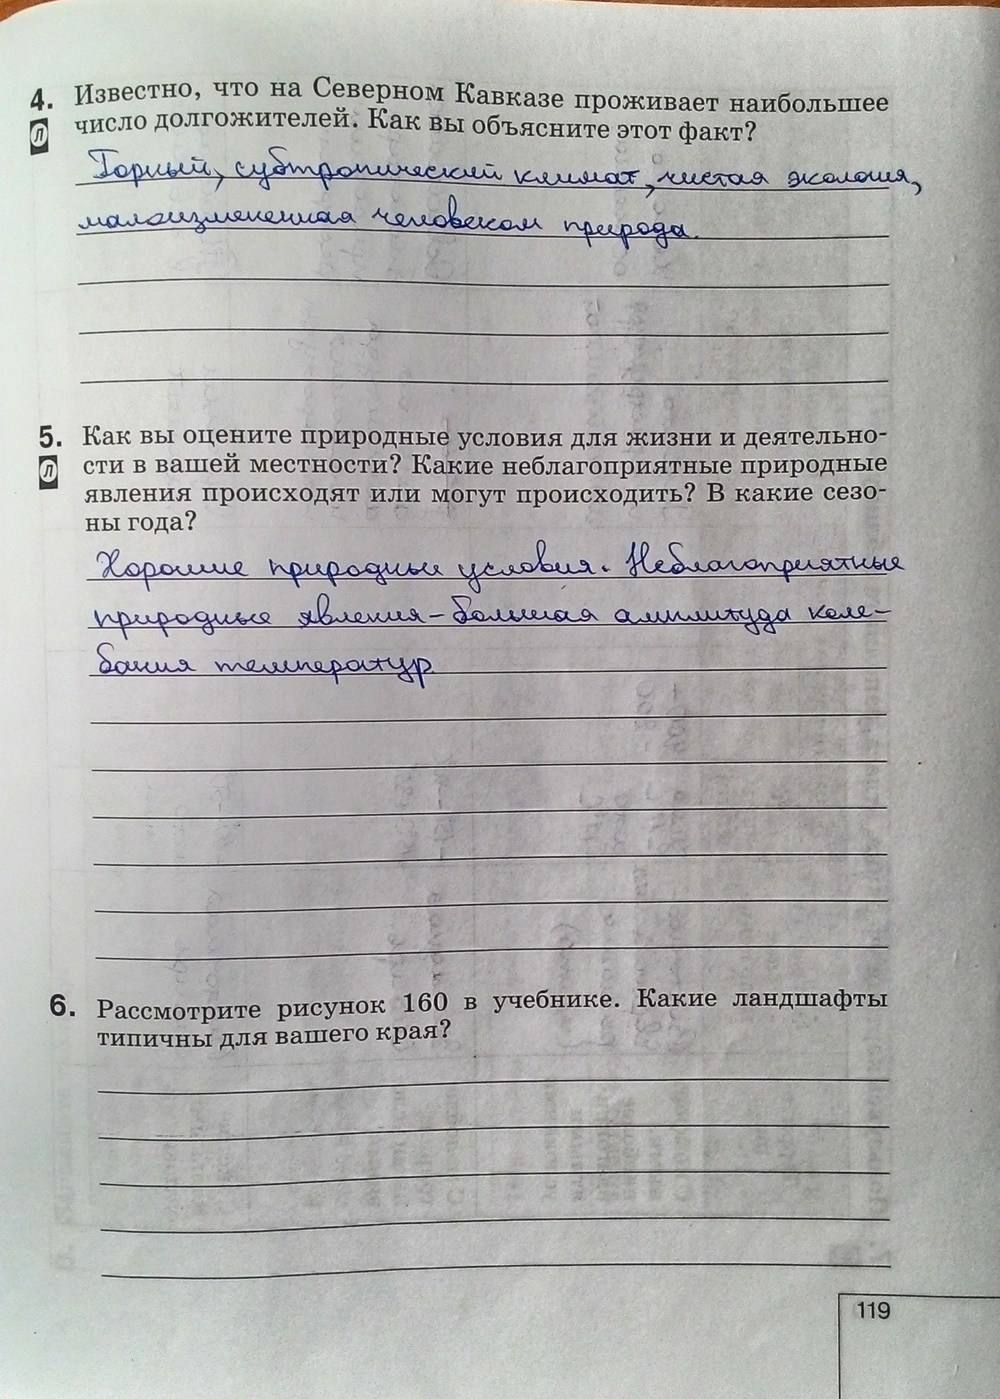 4. Известно, что на Северном Кавказе проживает наибольшее
Л число долгожителей. Как вы объясните этот факт?
Горный, субтропический климат, чистая экология,
малоизмененная человеком природа.
5. Как вы оцените природные условия для жизни и деятельно-
Л сти в вашей местности? Какие неблагоприятные природные
явления происходят или могут происходить? В какие сезо-
ны года?
Хорошие природные условия. Неблагоприятные
природные явления – большая амплитуда коле-
бания температур
6. Рассмотрите рисунок 160 в учебнике. Какие ландшафты
типичны для вашего края?
119